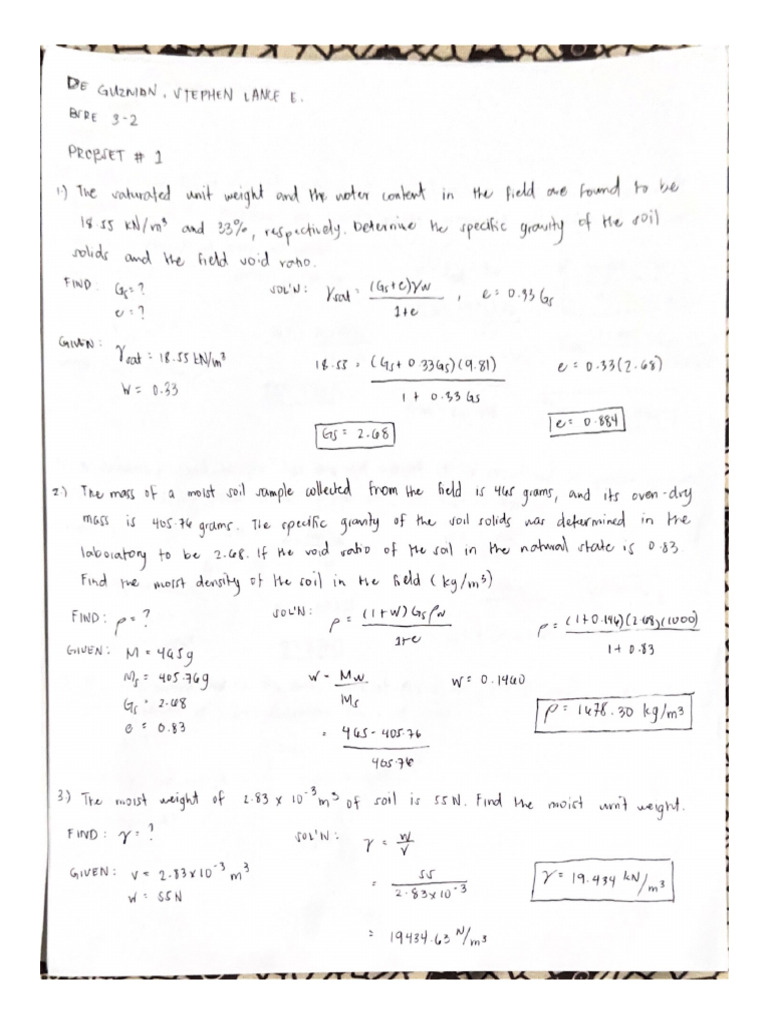 DE GUZMAN, STEPHEN LANCE E.
BSCE 3-2
PROBSET # 1
1.) The saturated unit weight and the water content in the field are found to be
18.55 kN/m³ and 33%, respectively. Determine the specific gravity of the soil
solids and the field void ratio.
FIND: Gs = ? SOL'N: γsat = (Gs+e)γw / 1+e , e = 0.33 Gs
e = ?
GIVEN: γsat = 18.55 kN/m³ 18.55 = (Gs + 0.33Gs)(9.81) / 1 + 0.33 Gs e = 0.33(2.68)
W = 0.33
Gs = 2.68 e = 0.884
2.) The mass of a moist soil sample collected from the field is 465 grams, and its oven-dry
mass is 405.76 grams. The specific gravity of the soil solids was determined in the
laboratory to be 2.68. If the void ratio of the soil in the natural state is 0.83.
Find the moist density of the soil in the field (kg/m³)
FIND: ρ = ? SOL'N: ρ = (1+W) Gs ρw / 1+e ρ = (1+0.146)(2.68)(1000) / 1 + 0.83
GIVEN: M = 465g
Ms = 405.76g W = Mw / Ms W = 0.1460
Gs = 2.68
e = 0.83 = 465 - 405.76 / 405.76 ρ = 1678.30 kg/m³
3.) The moist weight of 2.83 x 10⁻³ m³ of soil is 55N. Find the moist unit weight.
FIND: γ = ? SOL'N: γ = W / V
GIVEN: V = 2.83x10⁻³ m³ = 55 / 2.83x10⁻³ γ = 19.434 kN/m³
W = 55N
= 19434.63 N/m³